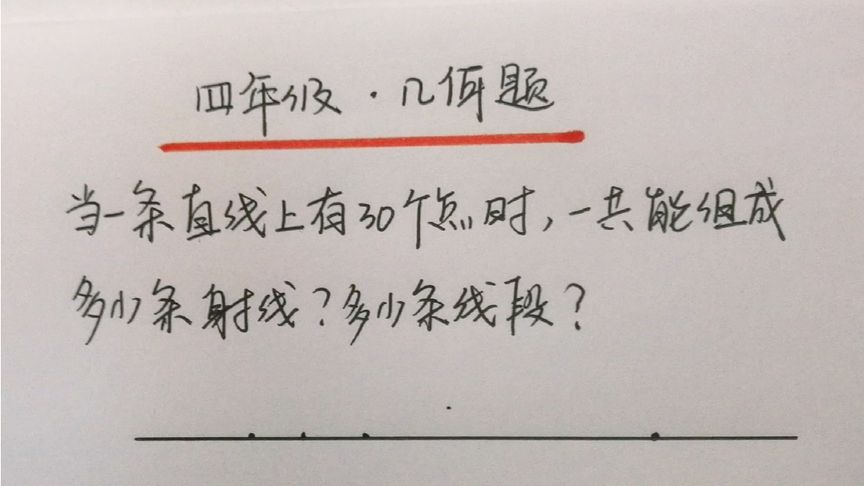 四年级·几何题
当一条直线上有30个点时,一共能组成
多少条射线?多少条线段?